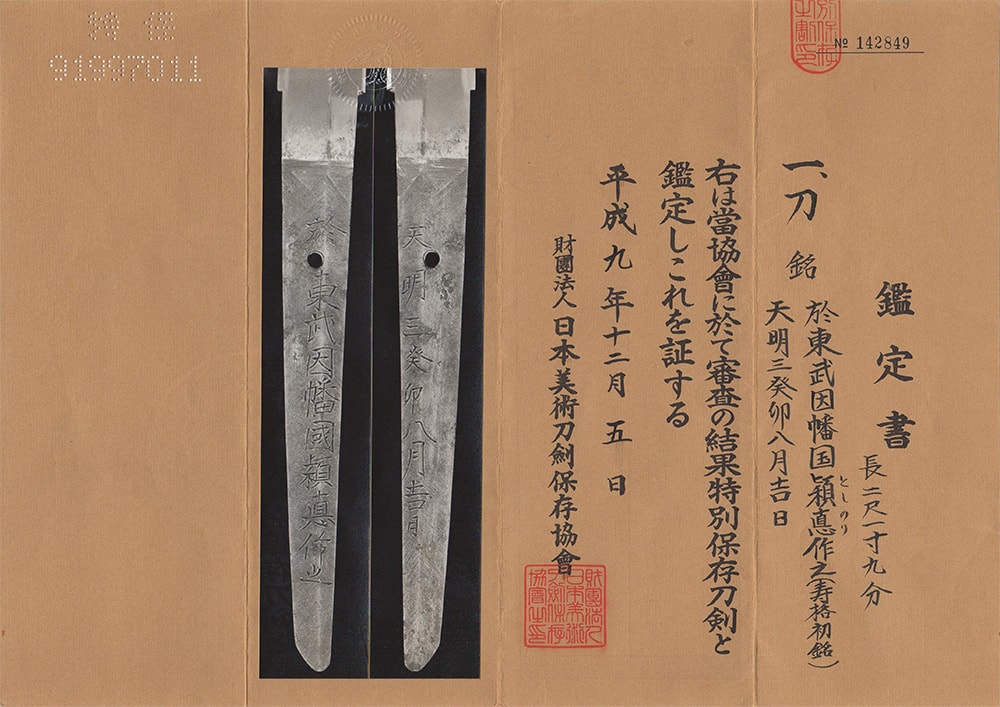 鑑定書
一、刀 銘 於東武因幡国穎悳作之(寿格初銘)
としのり
天明三癸卯八月吉日
長二尺一寸九分
右は當協會に於て審査の結果特別保存刀剣と
鑑定しこれを証する
平成九年十二月五日
財團法人日本美術刀劍保存協會
財團法人
日本美術
刀劍保存
協會之印
№ 142849
天明三癸卯八月吉日
於東武因幡國穎悳作之
特保
91997011